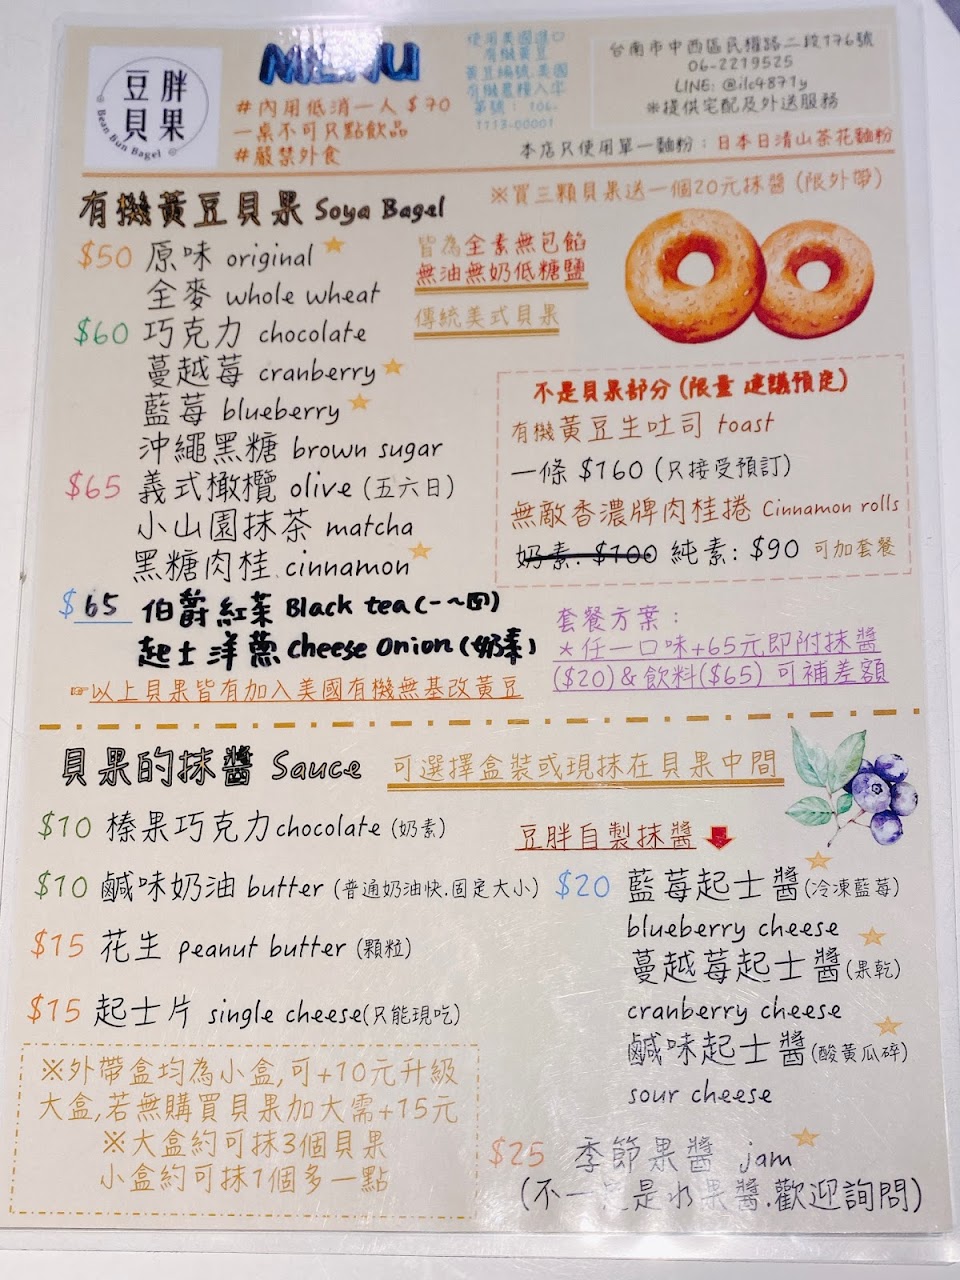 豆胖
貝果
Bean Bun Bagel
MENU
#內用低消一人$70
一桌不可只點飲品
#嚴禁外食
使用美國進口
有機黃豆
黃豆編號.美國
有機農糧入字
第號: 106-
1113-00001
台南市中西區民權路二段176號
06-2219525
LINE: @ilc4871y
※提供宅配及外送服務
本店只使用單一麵粉:日本日清山茶花麵粉
有機黃豆貝果 Soya Bagel
※買三顆貝果送一個20元抹醬(限外帶)
$50 原味 original
全麥 whole wheat
$60 巧克力 chocolate
蔓越莓 cranberry
藍莓 blueberry
沖繩黑糖 brown sugar
$65 義式橄欖 olive (五六日)
小山園抹茶 matcha
黑糖肉桂 cinnamon
$65 伯爵紅茶 Black tea(一~四)
起士洋蔥 cheese onion(奶素)
☞以上貝果皆有加入美國有機無基改黃豆
皆為全素無包餡
無油無奶低糖鹽
傳統美式貝果
不是貝果部分(限量 建議預定)
有機黃豆生吐司 toast
一條 $160 (只接受預訂)
無敵香濃牌肉桂捲 Cinnamon rolls
奶素: $100 純素: $90 可加套餐
套餐方案:
*任一口味+65元即附抹醬
($20)&飲料($65) 可補差額
貝果的抹醬 Sauce 可選擇盒裝或現抹在貝果中間
$10 榛果巧克力chocolate (奶素)
$10 鹹味奶油 butter (普通奶油快.固定大小)
$15 花生 peanut butter (顆粒)
$15 起士片 single cheese(只能現吃)
※外帶盒均為小盒,可+10元升級
大盒,若無購買貝果加大需+15元
※大盒約可抹3個貝果
小盒約可抹1個多一點
豆胖自製抹醬
$20 藍莓起士醬(冷凍藍莓)
blueberry cheese
蔓越莓起士醬(果乾)
cranberry cheese
鹹味起士醬(酸黃瓜碎)
sour cheese
$25 季節果醬 jam
(不一定是水果醬.歡迎詢問)